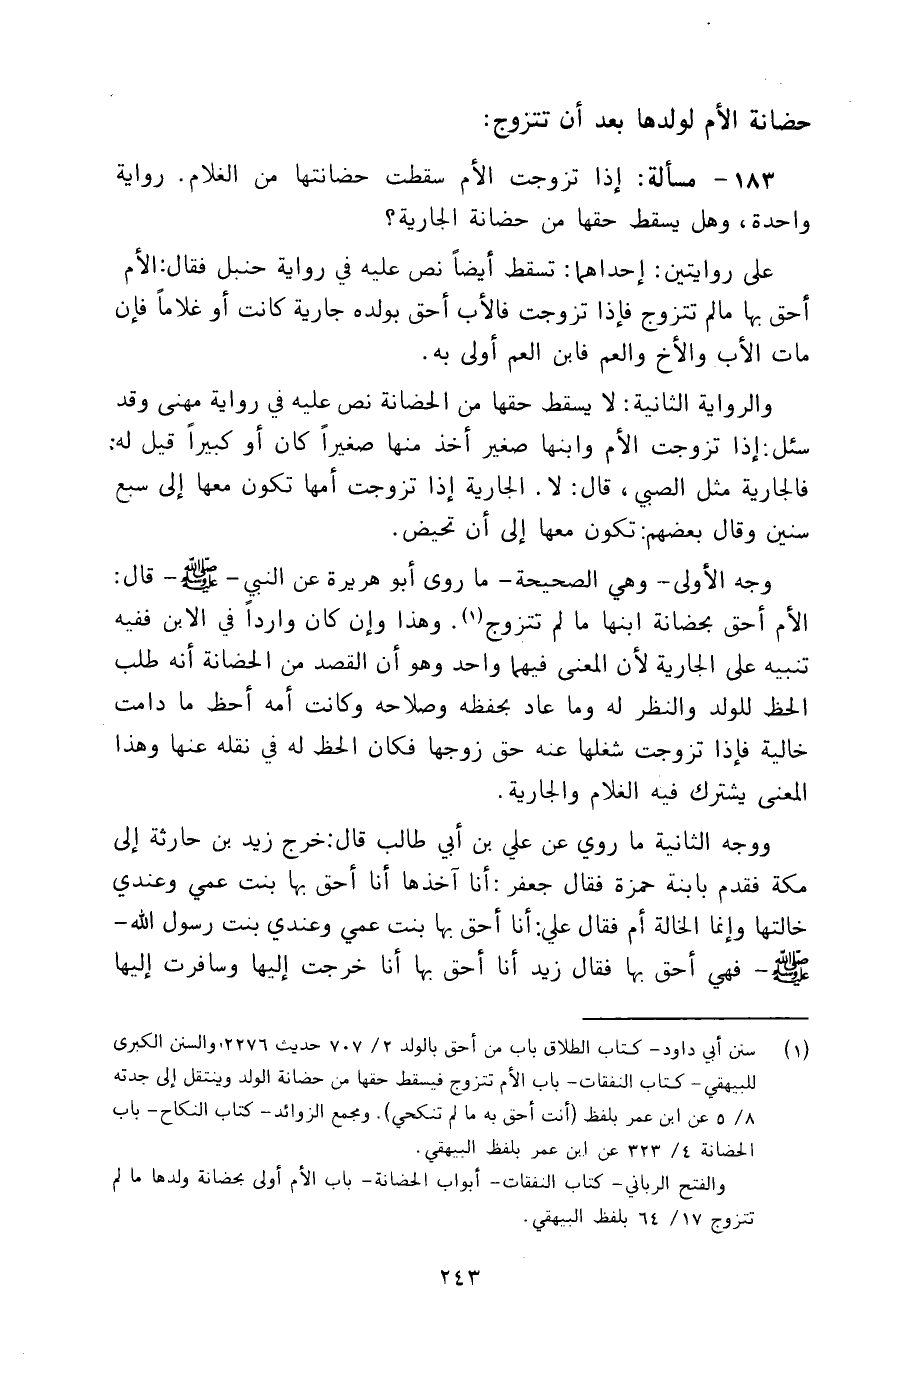 حضانة الأم لولدها بعد أن تتزوج:
١٨٣- مسألة: إذا تزوجت الأم سقطت حضانتها من الغلام. رواية
واحدة، وهل يسقط حقها من حضانة الجارية؟
على روايتين: إحداهما: تسقط أيضاً نص عليه في رواية حنبل فقال:الأم
أحق بها مالم تتزوج فإذا تزوجت فالأب أحق بولده جارية كانت أو غلاماً فإن
مات الأب والأخ والعم فابن العم أولى به.
والرواية الثانية: لا يسقط حقها من الحضانة نص عليه في رواية مهنى وقد
سئل:إذا تزوجت الأم وابنها صغير أخذ منها صغيراً كان أو كبيراً قيل له:
فالجارية مثل الصبي، قال: لا. الجارية إذا تزوجت أمها تكون معها إلى سبع
سنين وقال بعضهم:تكون معها إلى أن تحيض.
وجه الأولى- وهي الصحيحة- ما روى أبو هريرة عن النبي- ﷺ- قال:
الأم أحق بحضانة ابنها ما لم تتزوج(١). وهذا وإن كان وارداً في الابن ففيه
تنبيه على الجارية لأن المعنى فيهما واحد وهو أن القصد من الحضانة أنه طلب
الحظ للولد والنظر له وما عاد بحفظه وصلاحه وكانت أمه أحظ ما دامت
خالية فإذا تزوجت شغلها عنه حق زوجها فكان الحظ له في نقله عنها وهذا
المعنى يشترك فيه الغلام والجارية.
ووجه الثانية ما روي عن علي بن أبي طالب قال:خرج زيد بن حارثة إلى
مكة فقدم بابنة حمزة فقال جعفر :أنا آخذها أنا أحق بها بنت عمي وعندي
خالتها وإنما الخالة أم فقال علي:أنا أحق بها بنت عمي وعندي بنت رسول الله-
ﷺ- فهي أحق بها فقال زيد أنا أحق بها أنا خرجت إليها وسافرت إليها
(١) سنن أبي داود- كتاب الطلاق باب من أحق بالولد ٢/ ٧٠٧ حديث ٢٢٧٦، والسنن الكبرى
للبيهقي- كتاب النفقات- باب الأم تتزوج فيسقط حقها من حضانة الولد وينتقل إلى جدته
٨/ ٥ عن ابن عمر بلفظ (أنت أحق به ما لم تنكحي). ومجمع الزوائد- كتاب النكاح- باب
الحضانة ٤/ ٣٢٣ عن ابن عمر بلفظ البيهقي.
والفتح الرباني- كتاب النفقات- أبواب الحضانة- باب الأم أولى بحضانة ولدها ما لم
تتزوج ١٧/ ٦٤ بلفظ البيهقي.
٢٤٣